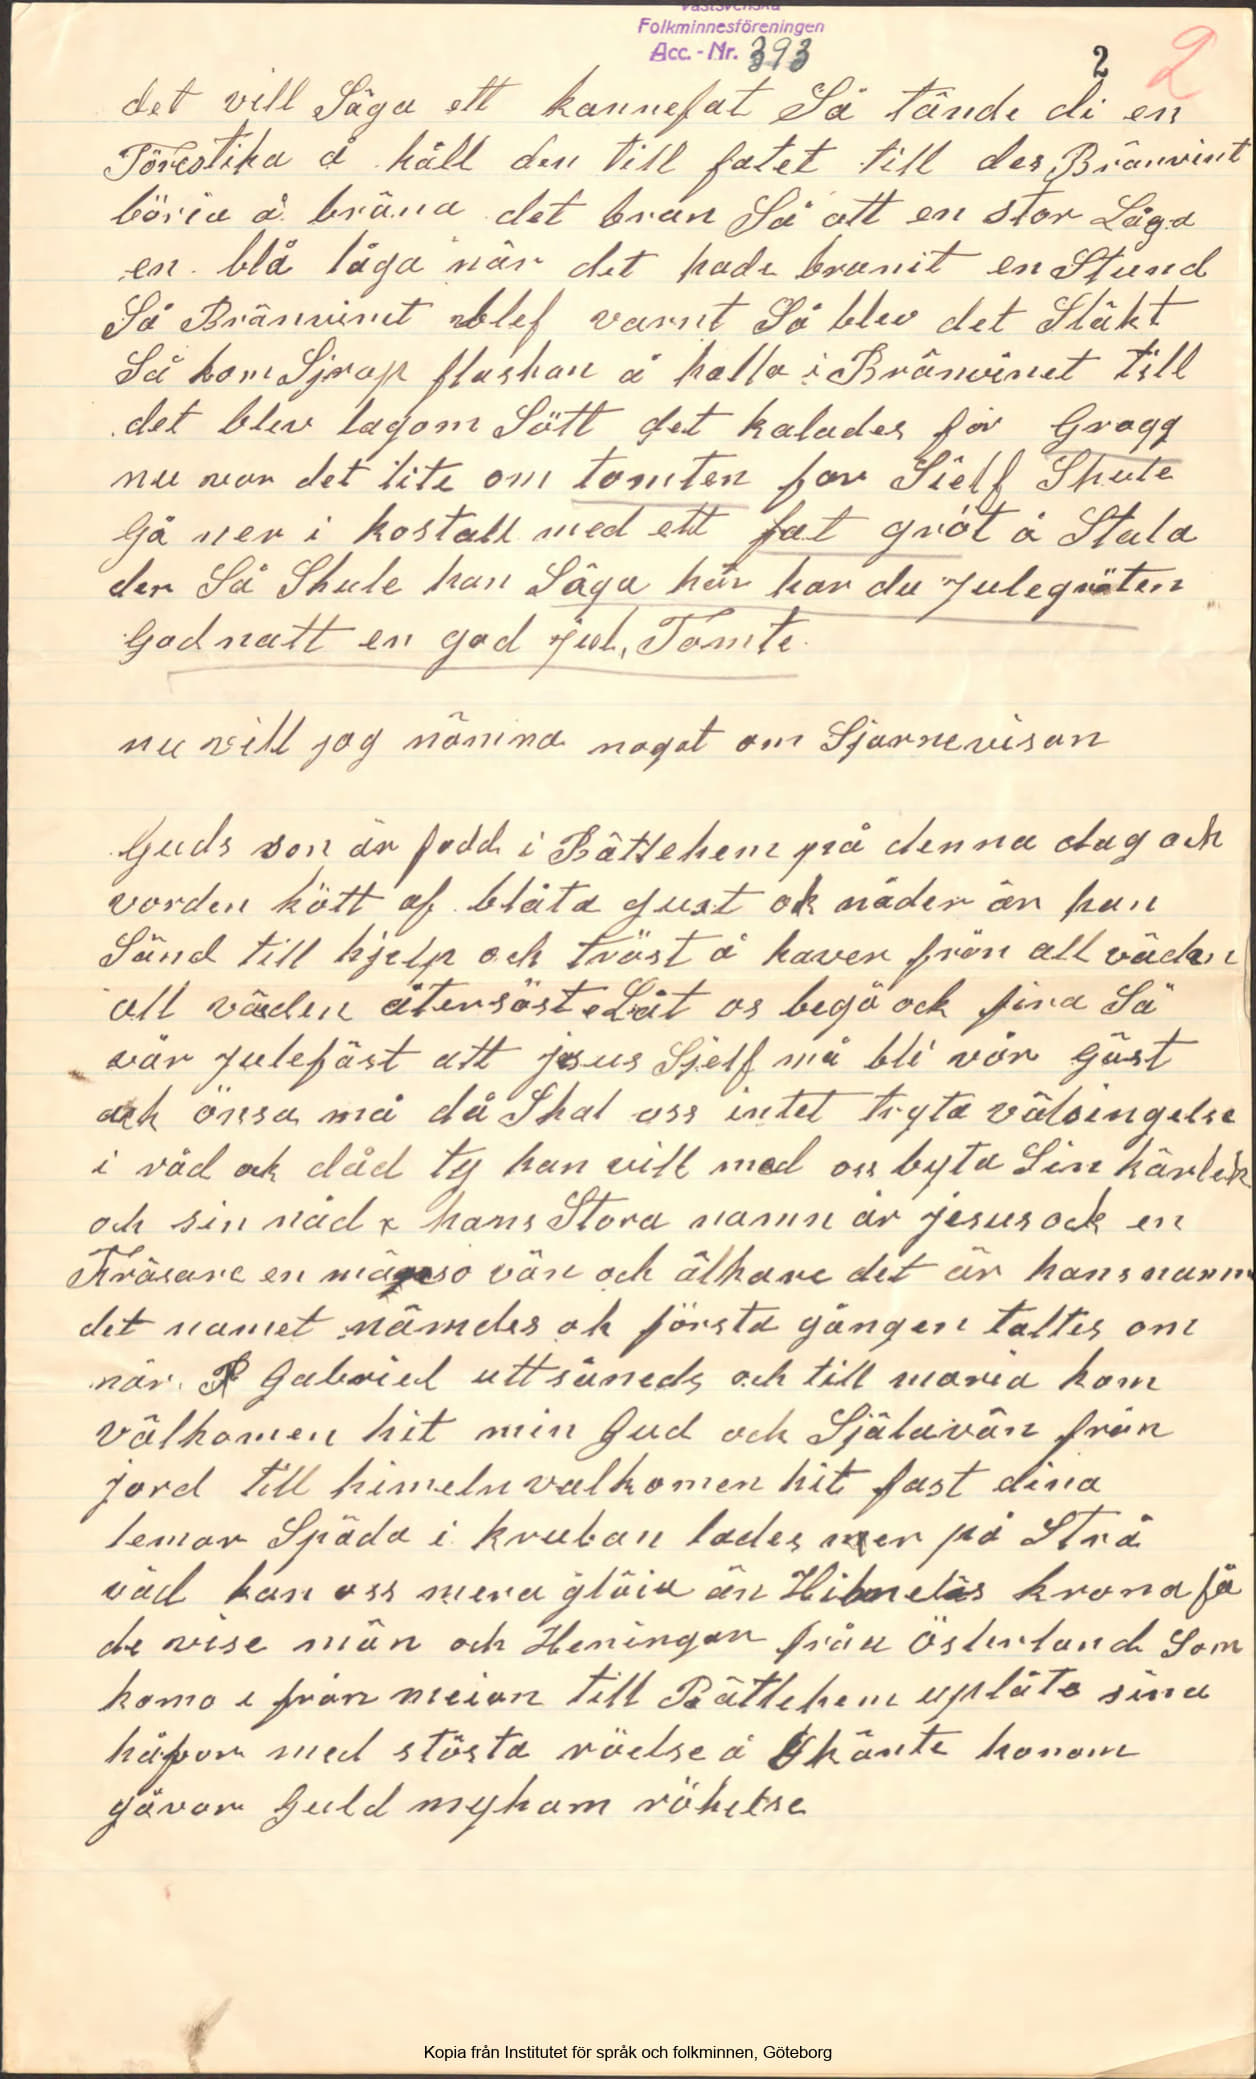 Västsvenska
Folkminnesföreningen
Acc.-Nr. 393
2 2
det vill Säga ett kannefat Så tände di en
Törestika å håll den till fatet till des Bränvint
böria å bräna det bran Så att en stor Låga
en blå låga när det hade branit en Stund
Så Bränvinet blef varnt Så blev det Släkt
Så kom Sjrap flaskan å halla i Bränvinet till
det blev lagom Sött det kalades för Gragg
nu var det lite om tomten far Sielf Skule
Gå ner i kostall med ett fat gröt å Stala
der Så Skule han Säga här har du Julegröten
God natt en god jul, Tomte
nu vill jag nämna nagat om Sjarnevisan
Guds son är född i Bättlehem på denna dag och
vorden kött af blåta gust ok nåder än han
Sänd till hjelp och tröst å haver från all våden
all våden återsöst Låt os begå ock fira Så
vår Julefäst att jesus Sjelf må bli vår Gäst
ack önsa må då Skal oss intet tryta välsingelse
i råd ok dåd ty han vill med oss byta Sin kärlek
och sin nåd hans Stora namn är jesus ock en
Fräsare en mäneso vän och älkare det är hans namn
det namet nämdes ok första gången taltes om
när Gabriel uttsäneds och till maria kom
Välkomen hit min Gud och Själavän från
jord till himeln valkomen hit fast dina
lemar Späda i kruban lades ner på Strå
väd kan oss mera glöia än Himelds krona få
de vise män och Heningar från Österland Som
komo i från meion till Bättlehem upläto sina
håpor med stösta röelse å Skänte honom
gåvor Guld myham rökelse
Kopia från Institutet för språk och folkminnen, Göteborg